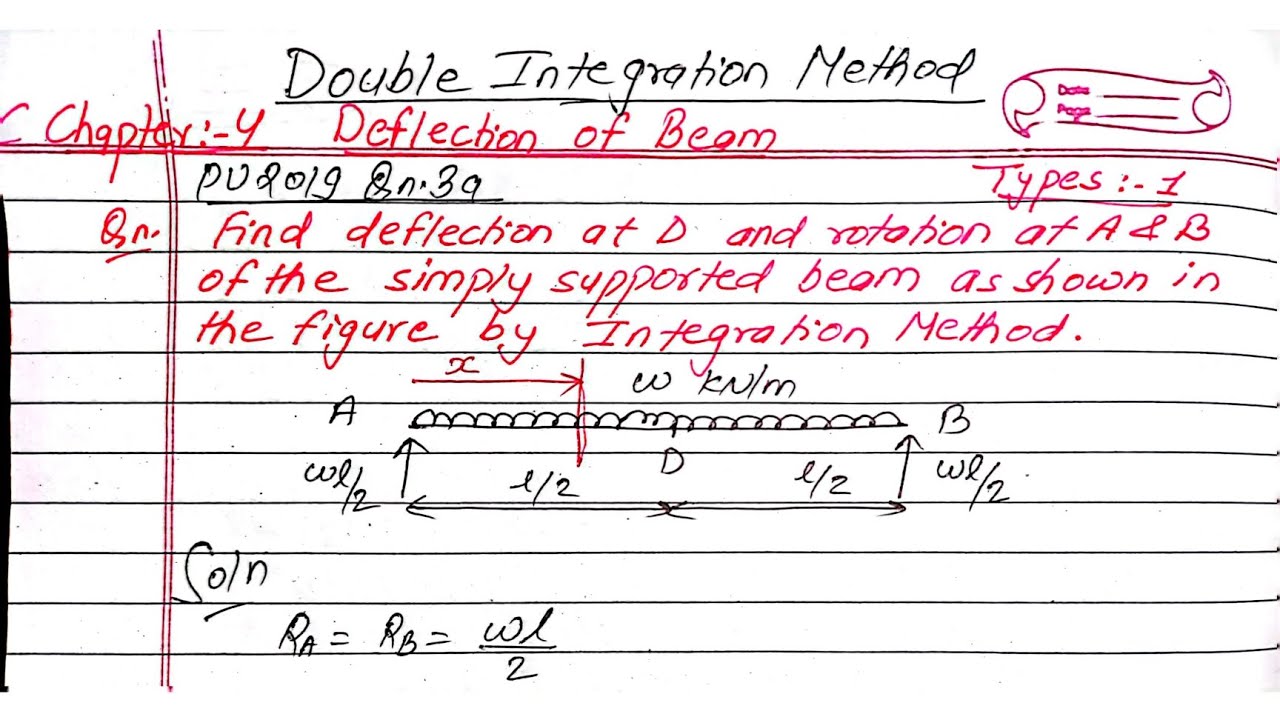 Double Integration Method
Date
Page
Chapter:-4 Deflection of Beam
PU 2019 Qn.3a
Types:-1
Qn. Find deflection at D and rotation at A & B
of the simply supported beam as shown in
the figure by Integration Method.
x
w kN/m
A B
D
wl/2 l/2 l/2 wl/2
Soln
RA = RB = wl/2